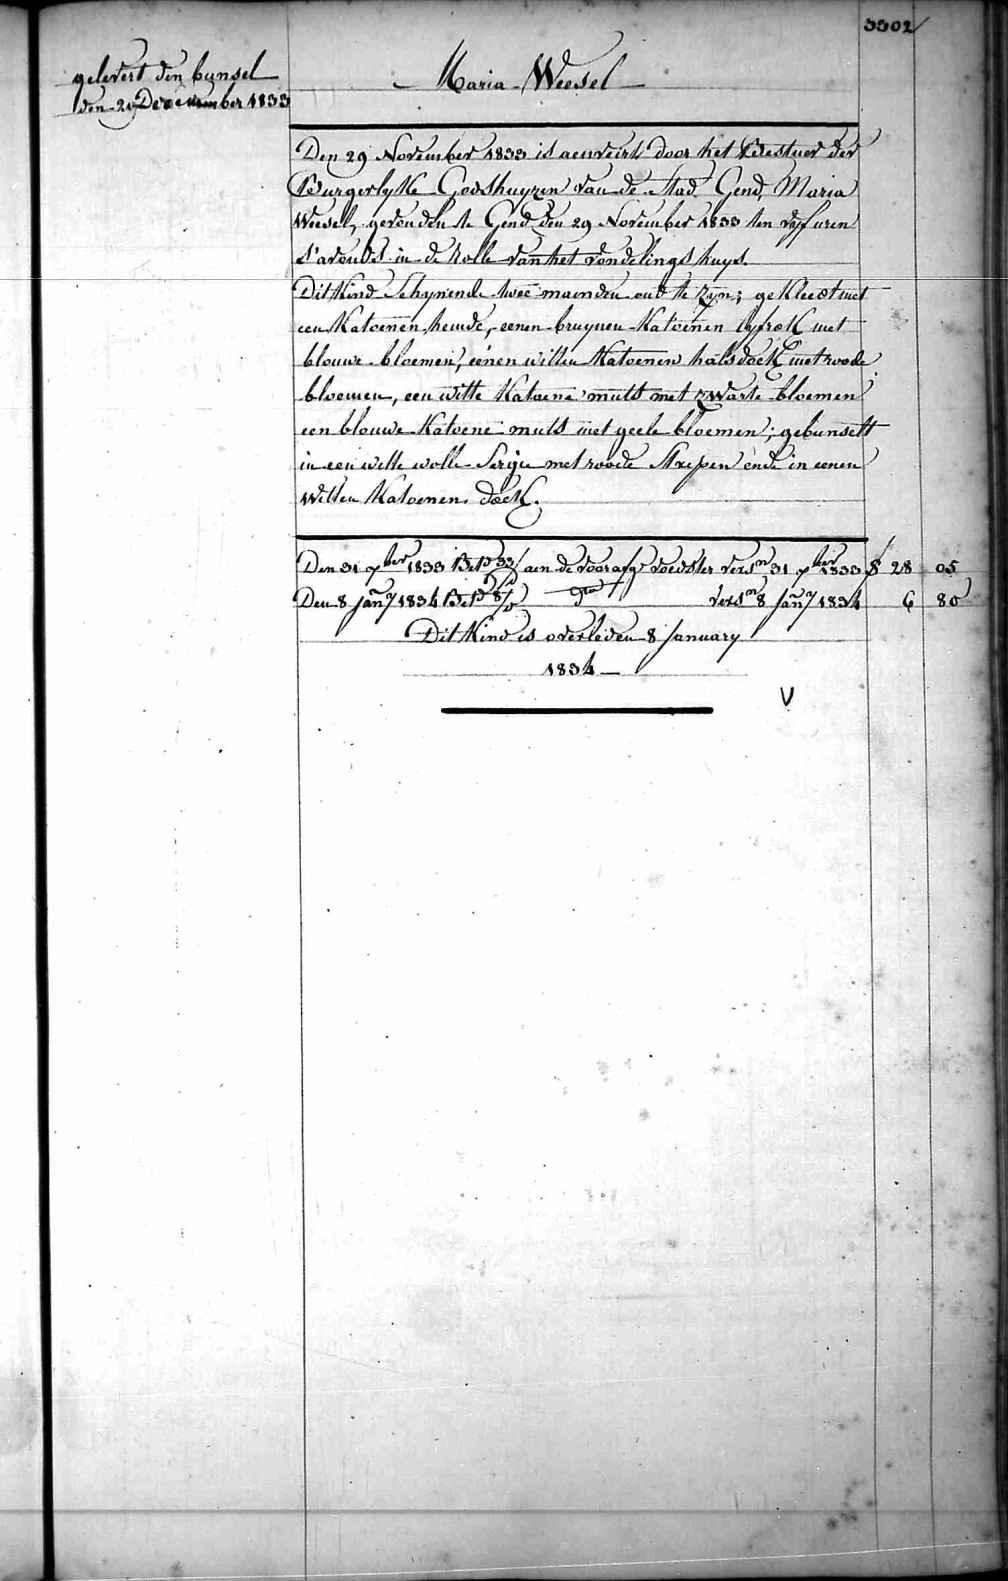 3302
gelevert den bunsel
den 29 December 1833
Maria Weesel
Den 29 November 1833 is aenveirt door het Bestuer der
Burgerlyke Godshuyzen van de Stad Gend, Maria
Weesel, gevonden te Gend den 29 November 1833 ten vyf uren
s'avonds in de rolle van het vondelings huys.
Dit Kind Schynende twee maenden oud te Zyn; gekleet met
een Katoenen hemde, eenen bruynen Katoenen lyfrok met
blouwe bloemen, eenen witten Katoenen halsdoek met roode
bloemen, een witte Katoene muts met zwarte bloemen
een blouwe Katoene muts met geele bloemen; gebunselt
in een witte wolle Sergie met roode Strepen ende in eenen
Witten Katoenen doek.
Den 31 xber 1833 aen de voorafge voedster versn 31 xber 1833 f 28 05
Den 8 Jany 1834 dto versn 8 Jany 1834 6 80
Dit Kind is overleden 8 January
1834
V